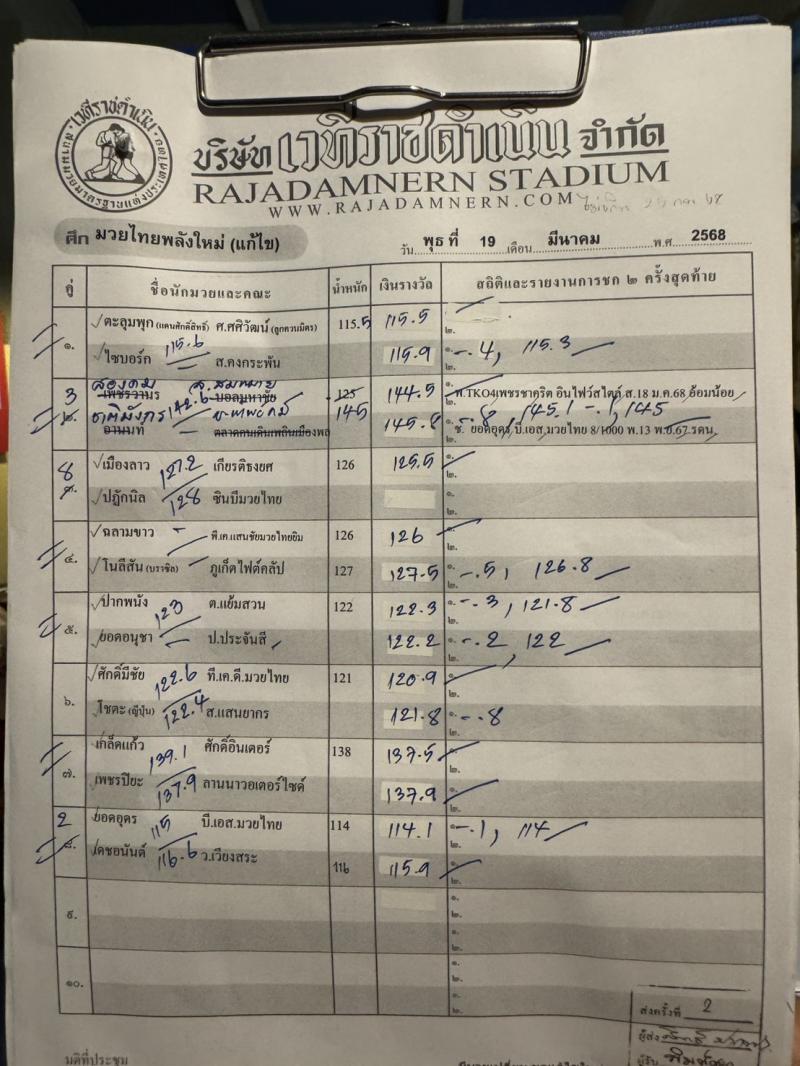 เวทีราชดำเนิน
บริษัท เวทีราชดำเนิน จำกัด
RAJADAMNERN STADIUM
WWW.RAJADAMNERN.COM
ศึก มวยไทยพลังใหม่ (แก้ไข)
วัน พุธ ที่ 19 เดือน มีนาคม พ.ศ. 2568
คู่ ชื่อนักมวยและคณะ น้ำหนัก เงินรางวัล สถิติและรายงานการชก ๒ ครั้งสุดท้าย
๑. ตะลุมพุก (แดนศักดิ์สิทธิ์) ศ.ศศิวัฒน์ (ลูกควนมิตร) 115.5 115.5 ๒.
ไซบอร์ก 115.6 ส.คงกระพัน 115.9 ๑. -.4, 115.3 ๒.
3 เพชรวานร บอลมหาชัย 125 144.5 ๑. พ.TKO4เพชรชาคริต อินไฟว์สไตล์ ส.18 ม.ค.68 อ้อมน้อย
๒. ชาติมังกร 142.6 145 145.8 ๒. 145.1 -.1, 145
อานนท์ ตลาดคนเดินเพลินเมืองพล ช. ยอดอุดร บี.เอส.มวยไทย 8/1000 พ.13 พ.ย.67 รดน.
8 เมืองลาว 127.2 เกียรติธงยศ 126 125.5 ๑. ๒.
๓. ปฏักนิล 128 ซินบีมวยไทย ๑. ๒.
ฉลามขาว พี.เค.แสนชัยมวยไทยยิม 126 126 ๑. ๒.
๔. โนลีสัน (บราซิล) ภูเก็ตไฟต์คลับ 127 127.5 ๑. -.5, 126.8 ๒.
ปากพนัง 123 ต.แย้มสวน 122 122.3 ๑. -.3, 121.8 ๒.
๕. ยอดอนุชา ป.ประจันสี 122.2 ๑. -.2, 122 ๒.
ศักดิ์มีชัย 122.6 ที.เค.ดี.มวยไทย 121 120.9 ๑. ๒.
๖. โชตะ (ญี่ปุ่น) 122.4 ส.แสนยากร 121.8 ๑. -.8 ๒.
เกล็ดแก้ว 139.1 ศักดิ์อินเตอร์ 138 137.5 ๑. ๒.
๗. เพชรปิยะ 137.9 ลานนาวอเตอร์ไซด์ 137.9 ๑. ๒.
2 ยอดอุดร 115 บี.เอส.มวยไทย 114 114.1 ๑. -.1, 114 ๒.
๘. เดชอนันต์ 116.6 ว.เวียงสระ 116 115.9 ๑. ๒.
๙. ๑. ๒. ๑. ๒.
๑๐. ๑. ๒. ๑. ๒.
ส่งครั้งที่ 2
ผู้ส่ง
ผู้รับ
มติที่ประชุม